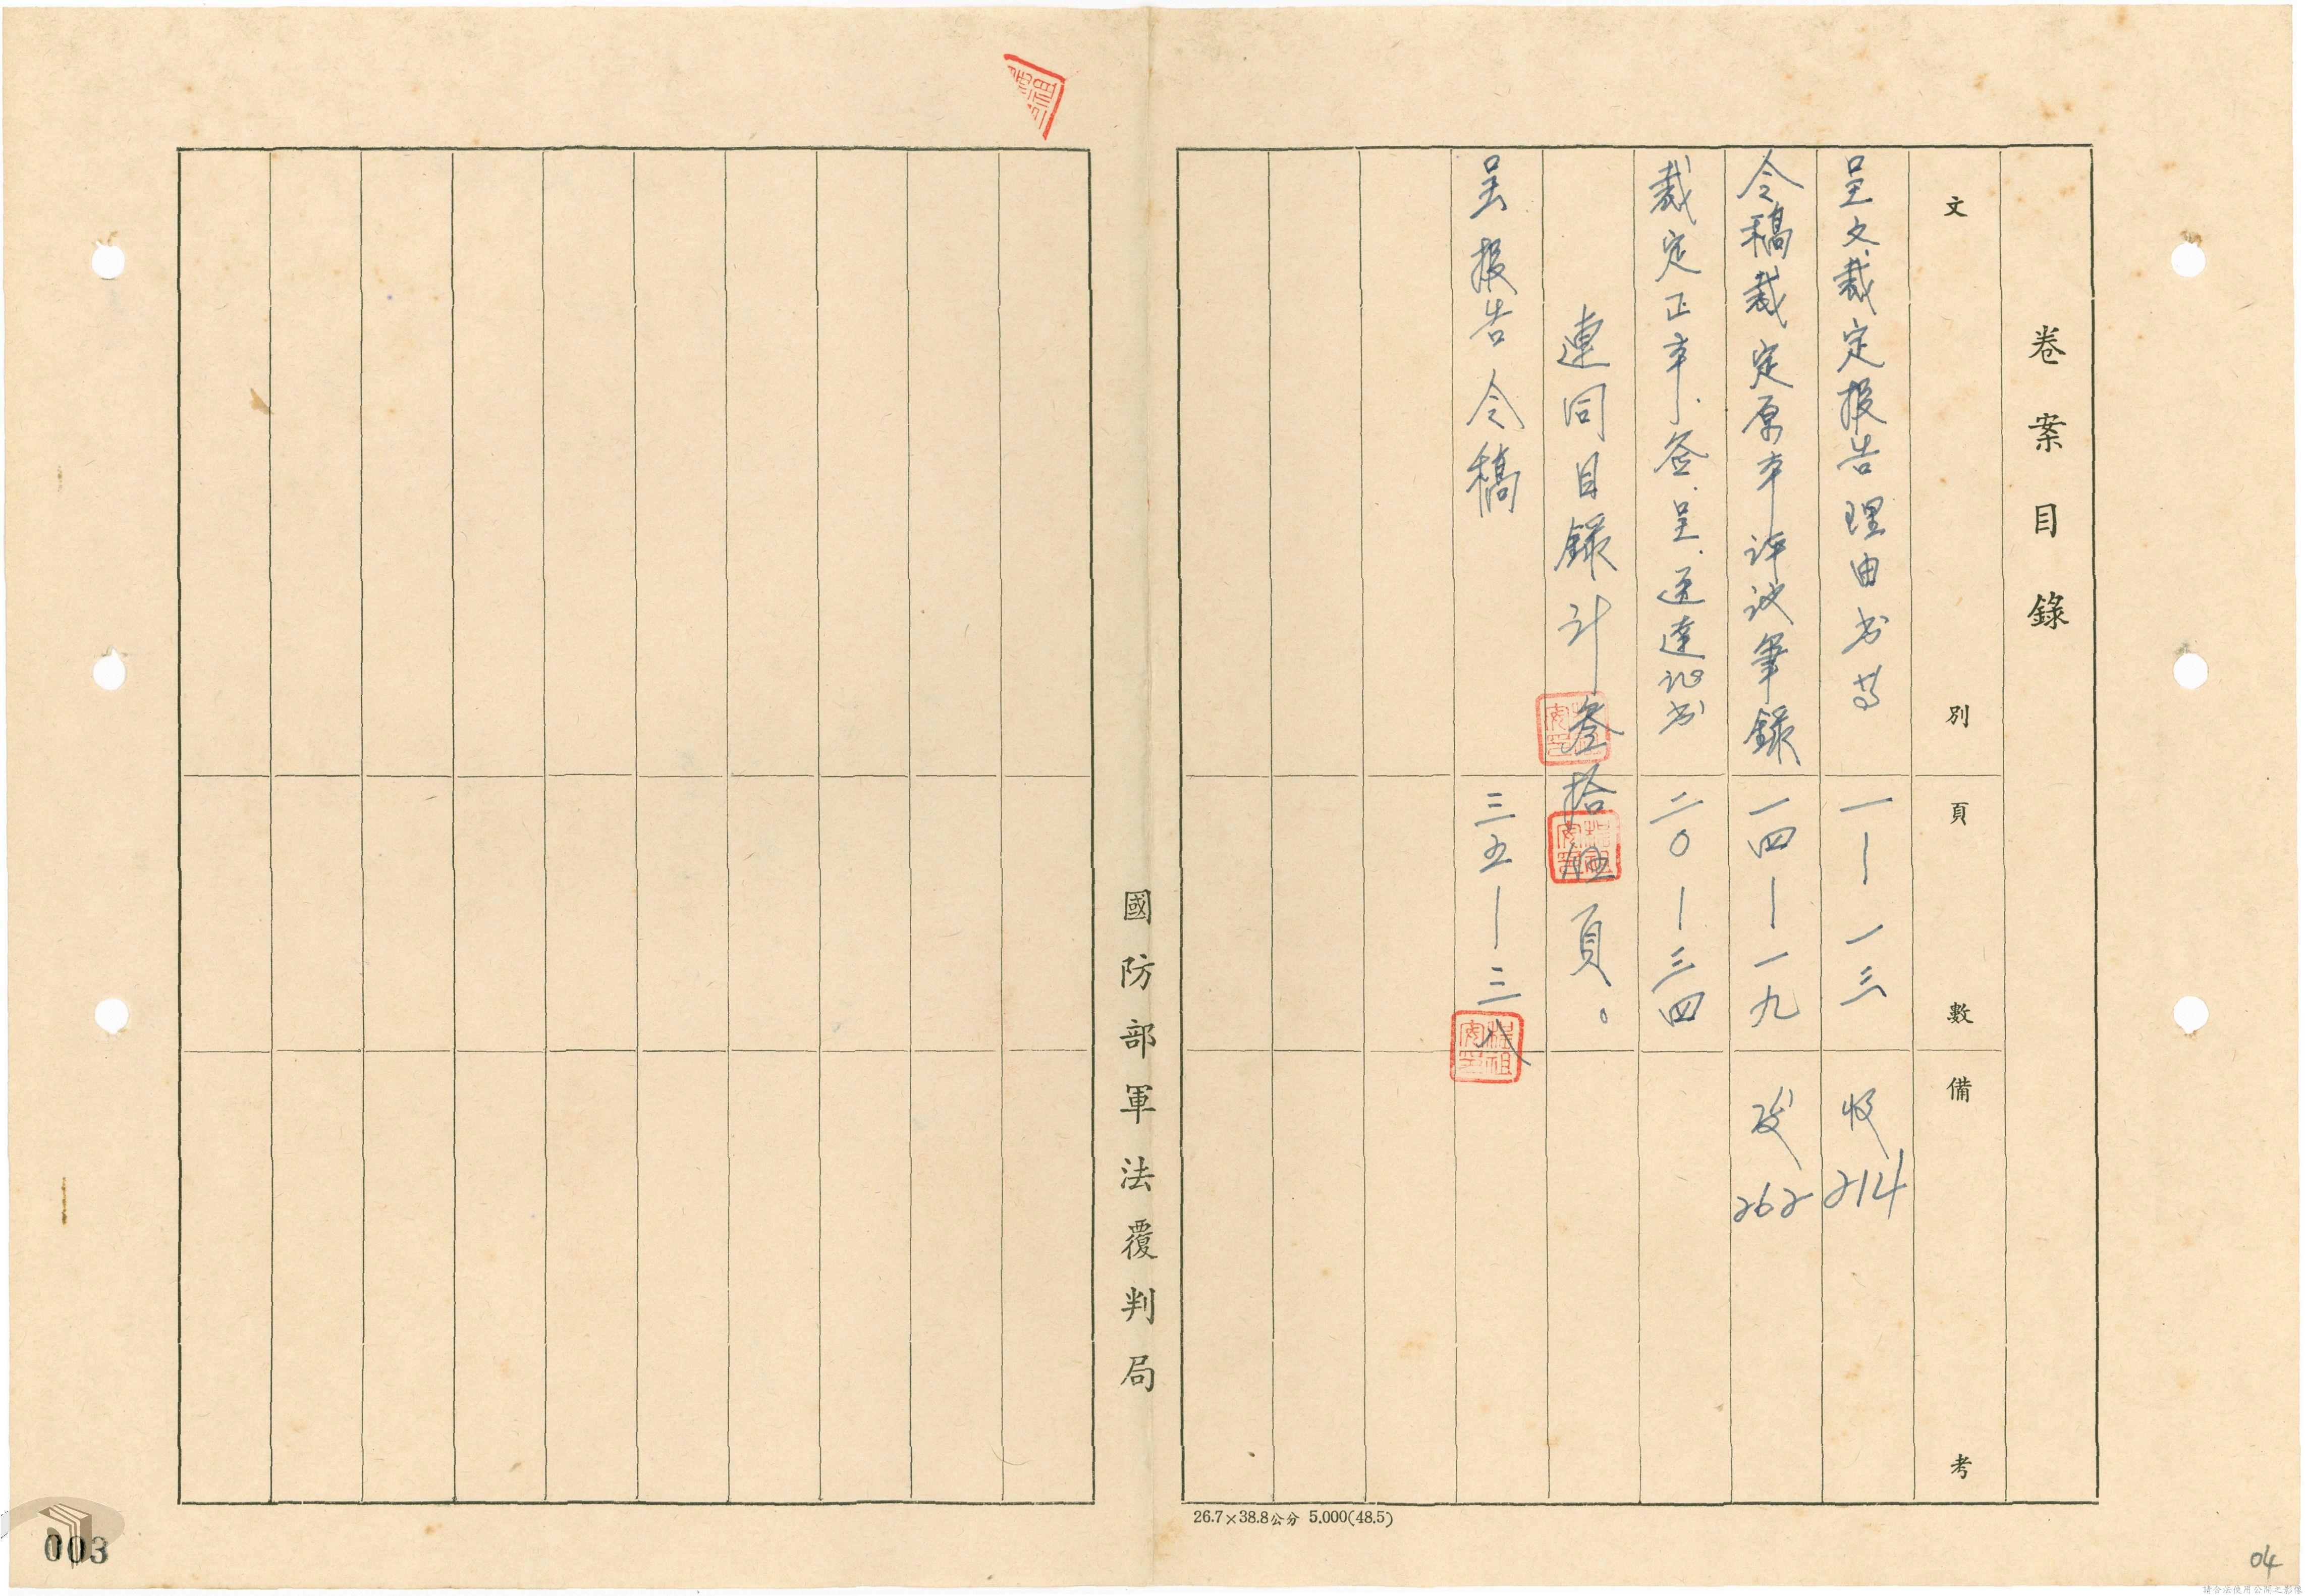 卷案目錄
文別 頁數 備考
呈文.裁定報告理由书等 一—一三 收214
令稿裁定原本评议筆錄 一四—一九 发262
裁定正本.签.呈.送達证书 二〇—三四
連同目錄計叄拾伍頁。
呈报告令稿 三五—三八
國防部軍法覆判局
26.7×38.8公分 5.000(48.5)
003
04
請合法使用公開之影像